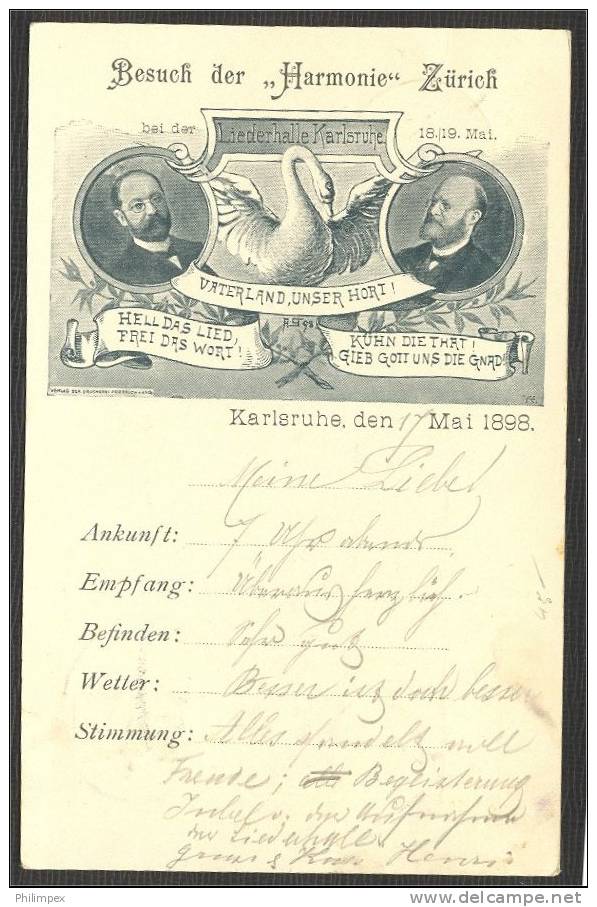 Besuch der „Harmonie“ Zürich
bei der Liederhalle Karlsruhe. 18./19. Mai.
VATERLAND, UNSER HORT!
HELL DAS LIED,
FREI DAS WORT!
KÜHN DIE THAT!
GIEB GOTT UNS DIE GNAD
98
VERLAG DER DRUCKEREI
Karlsruhe, den 17 Mai 1898.
Meine Liebe!
Ankunft: 7 Uhr abends.
Empfang: Überaus herzlich.
Befinden: Sehr gut
Wetter: Besser ist doch besser
Stimmung: Alles voll
Freude; alle Begeisterung
der Aufnahme
der Liederhalle.
Gruss & Kuss Henri
Philimpex
www.delcampe.net